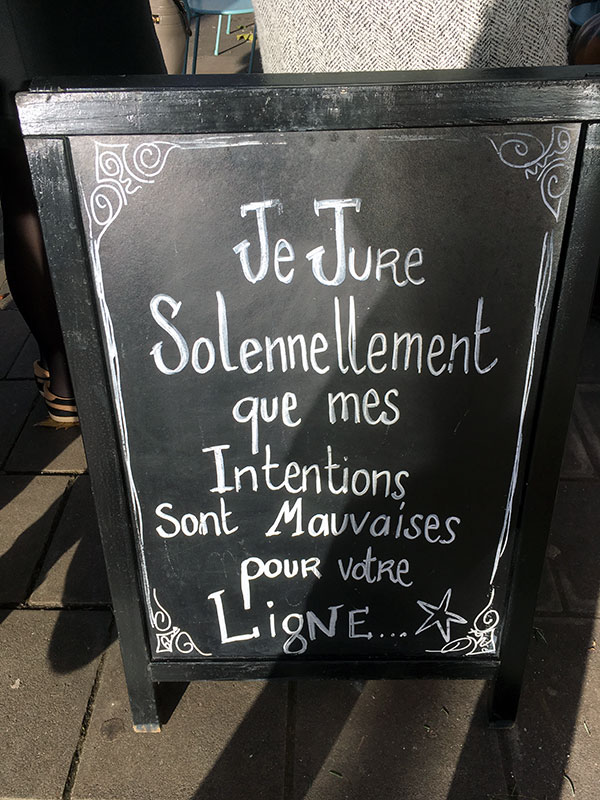 Je Jure
Solennellement
que mes
Intentions
Sont Mauvaises
pour votre
Ligne...